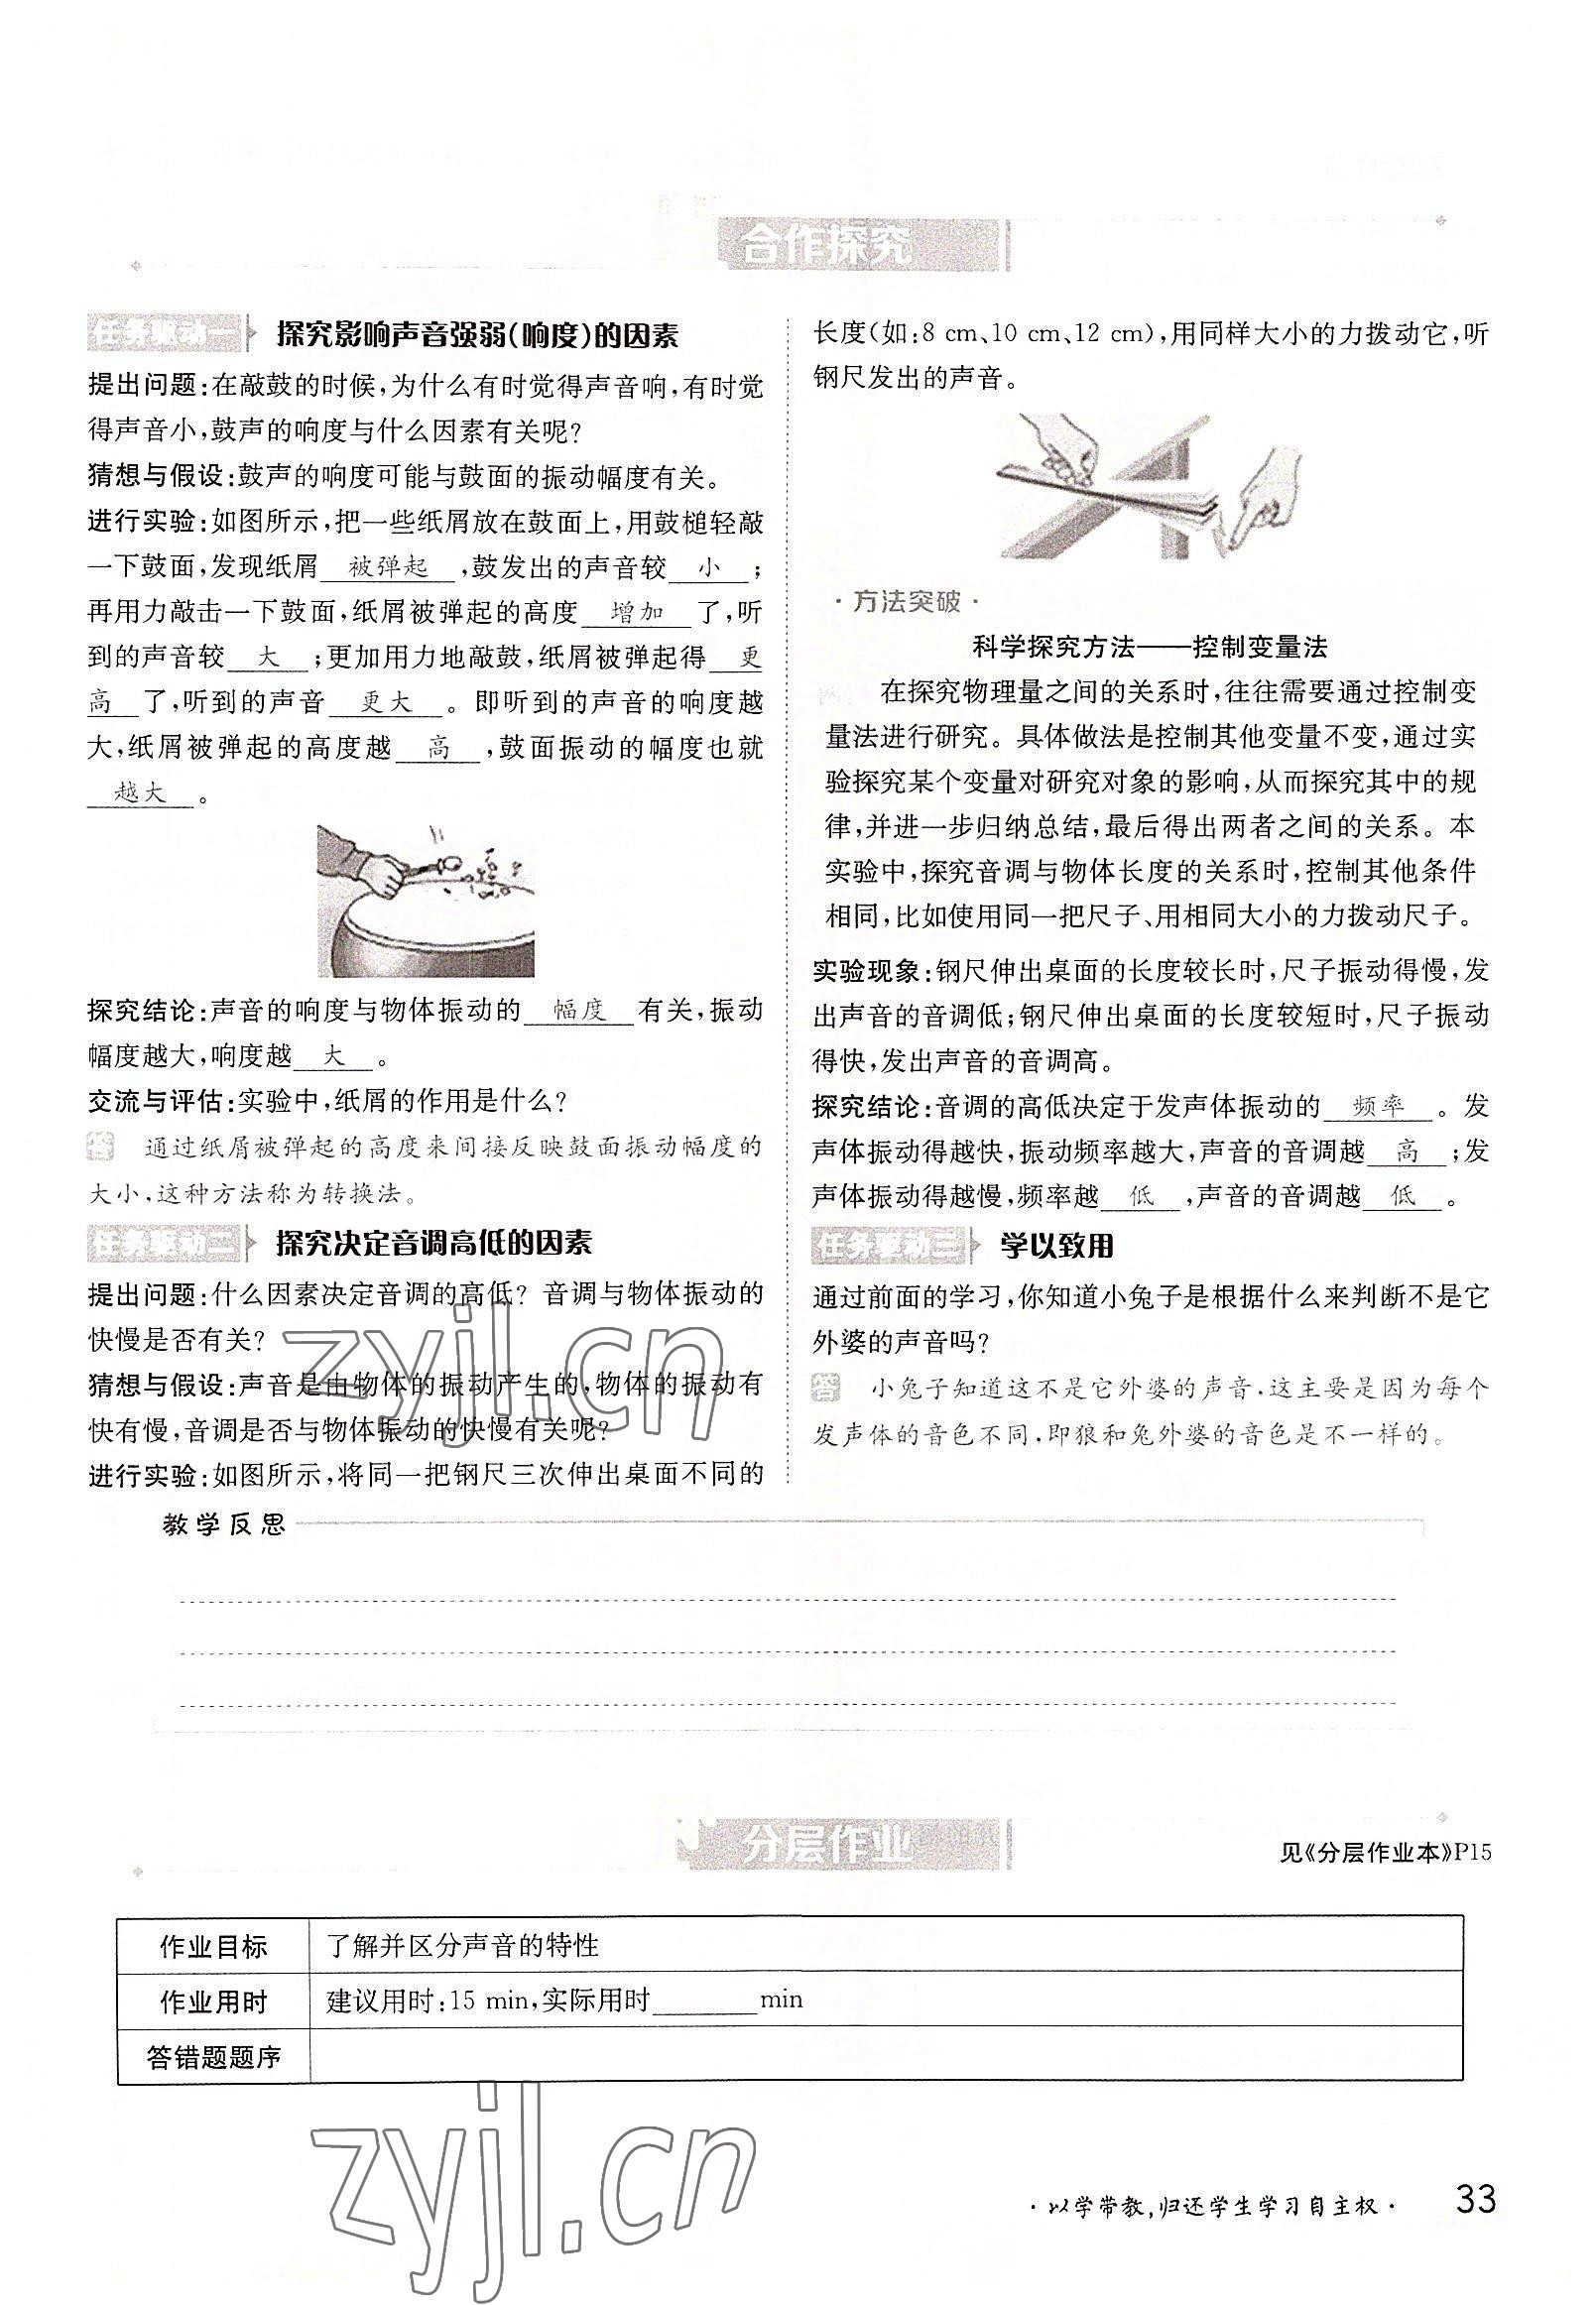 合作探究
任务驱动一 探究影响声音强弱(响度)的因素
提出问题:在敲鼓的时候,为什么有时觉得声音响,有时觉
得声音小,鼓声的响度与什么因素有关呢?
猜想与假设:鼓声的响度可能与鼓面的振动幅度有关。
进行实验:如图所示,把一些纸屑放在鼓面上,用鼓槌轻敲
一下鼓面,发现纸屑 被弹起 ,鼓发出的声音较 小 ;
再用力敲击一下鼓面,纸屑被弹起的高度 增加 了,听
到的声音较 大 ;更加用力地敲鼓,纸屑被弹起得 更
高 了,听到的声音 更大 。即听到的声音的响度越
大,纸屑被弹起的高度越 高 ,鼓面振动的幅度也就
越大 。
探究结论:声音的响度与物体振动的 幅度 有关,振动
幅度越大,响度越 大 。
交流与评估:实验中,纸屑的作用是什么?
答 通过纸屑被弹起的高度来间接反映鼓面振动幅度的
大小,这种方法称为转换法。
任务驱动二 探究决定音调高低的因素
提出问题:什么因素决定音调的高低? 音调与物体振动的
快慢是否有关?
猜想与假设:声音是由物体的振动产生的,物体的振动有
快有慢,音调是否与物体振动的快慢有关呢?
进行实验:如图所示,将同一把钢尺三次伸出桌面不同的
长度(如:8 cm、10 cm、12 cm),用同样大小的力拨动它,听
钢尺发出的声音。
·方法突破·
科学探究方法——控制变量法
在探究物理量之间的关系时,往往需要通过控制变
量法进行研究。具体做法是控制其他变量不变,通过实
验探究某个变量对研究对象的影响,从而探究其中的规
律,并进一步归纳总结,最后得出两者之间的关系。本
实验中,探究音调与物体长度的关系时,控制其他条件
相同,比如使用同一把尺子、用相同大小的力拨动尺子。
实验现象:钢尺伸出桌面的长度较长时,尺子振动得慢,发
出声音的音调低;钢尺伸出桌面的长度较短时,尺子振动
得快,发出声音的音调高。
探究结论:音调的高低决定于发声体振动的 频率 。发
声体振动得越快,振动频率越大,声音的音调越 高 ;发
声体振动得越慢,频率越 低 ,声音的音调越 低 。
任务驱动三 学以致用
通过前面的学习,你知道小兔子是根据什么来判断不是它
外婆的声音吗?
答 小兔子知道这不是它外婆的声音,这主要是因为每个
发声体的音色不同,即狼和兔外婆的音色是不一样的。
zyjl.cn
教学反思
分层作业
见《分层作业本》P15
作业目标 了解并区分声音的特性
作业用时 建议用时:15 min,实际用时________min
答错题题序
zyjl.cn
·以学带教,归还学生学习自主权· 33